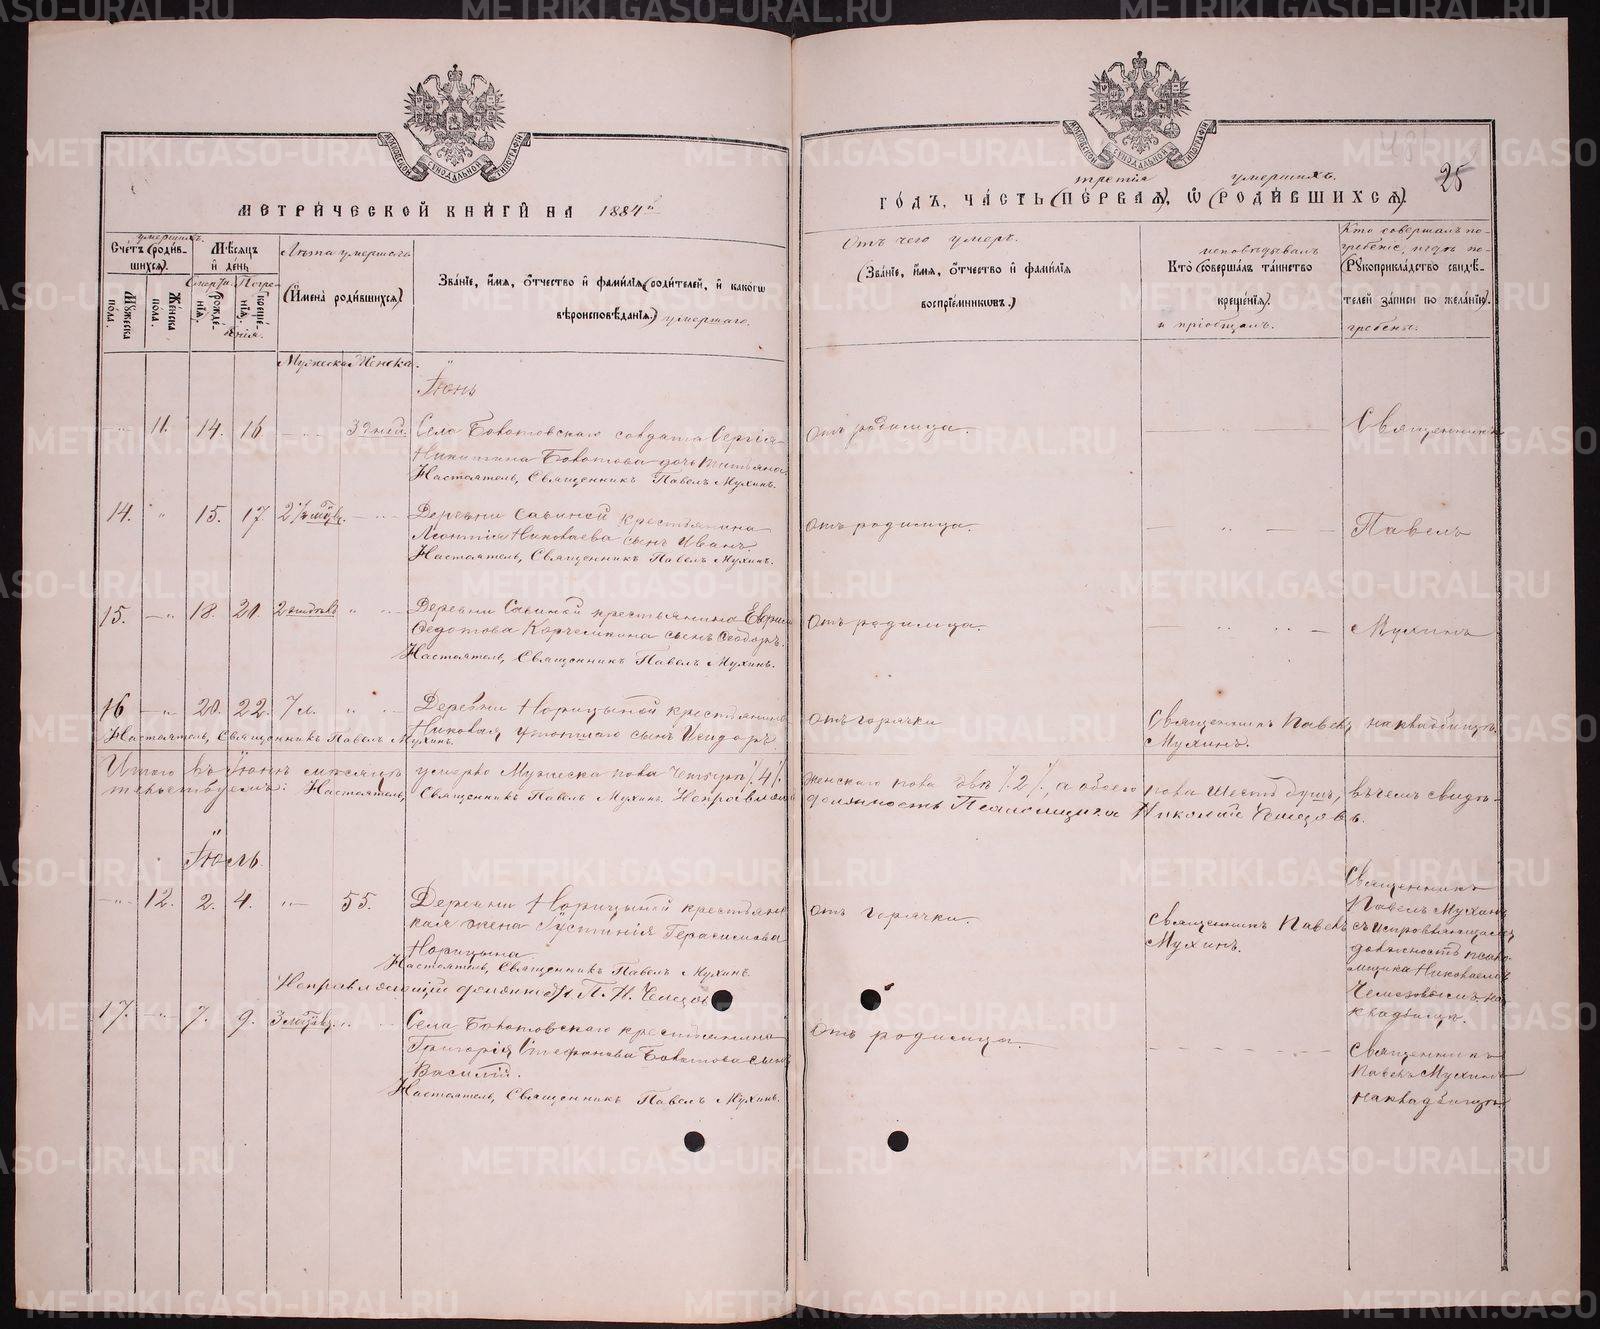 МЕТРИЧЕСКОЙ КНИГИ НА 1884й
ГОДЪ, ЧАСТЬ (ПЕРВАЯ), Ѡ (РОДИВШИХСЯ).
третія умершихъ.
25
умершихъ.
Счетъ (родив-
шихся).
Мужеска
пола.
Женска
пола.
Мѣсяцъ
и день
Смерти. Погре-
(рожде-
нія.
креще-
нія.
бенія.
Лѣта умершаго
(Имена родившихся)
Мужеска Женска.
Званіе, имя, отчество и фамилія (родителей, и какогѡ
вѣроисповѣданія.) умершаго.
Отъ чего умеръ.
(Званіе, имя, отчество и фамилія
воспріемниковъ.)
исповѣдывалъ
Кто (совершалъ таинство
крещенія).
и пріобщалъ.
Кто совершалъ по-
гребеніе, и гдѣ по-
(Рукоприкладство свидѣ-
телей записи по желанію).
гребены.
Іюнь
11. 14. 16. 3 дней. Села Боботовскаго солдата Сергія
Никитина дочь Татьяна
Настоятель, Священникъ Павелъ Мухинъ.
Отъ родимца.
Священникъ
14. 15. 17. Деревни Савиной крестьянина
Леонтія Николаева сынъ Иванъ.
Настоятель, Священникъ Павелъ Мухинъ.
Отъ родимца.
Павелъ
15. 18. 20. Деревни Савиной крестьянина
Федотова Корчемкина сынъ Ѳеодоръ.
Настоятель, Священникъ Павелъ Мухинъ.
Отъ родимца.
Мухинъ
16 20. 22. 7 л. Деревни Норицыной крестьянина
сынъ Исидоръ
Настоятель, Священникъ Павелъ Мухинъ.
Отъ горячки
Священникъ Павелъ
Мухинъ.
на кладбищѣ.
Итого въ Іюнѣ мѣсяцѣ умерло Мужеска пола четыре /4/. Женскаго пола двѣ /2/, а обоего пола шесть душъ, въ чемъ свидѣ-
тельствуемъ: Настоятель, Священникъ Павелъ Мухинъ. Исправляющій должность Псаломщика Николай
Іюль.
12. 2. 4. 55. Деревни Норицыной крестьян-
ская жена Іустинія Герасимова
Норицына
Настоятель, Священникъ Павелъ Мухинъ.
Исправляющій должность П. Н.
Отъ горячки.
Священникъ Павелъ
Мухинъ.
Священникъ
Павелъ Мухинъ
съ исправляющимъ
должность псало-
мщика Николаемъ
на
кладбищѣ.
17. 7. 9. Села Боботовскаго крестьянина
Григорія Стефанова сынъ
Василій.
Настоятель, Священникъ Павелъ Мухинъ.
Отъ родимца.
Священникъ
Павелъ Мухинъ
на кладбищѣ.
METRIKI.GASO-URAL.RU